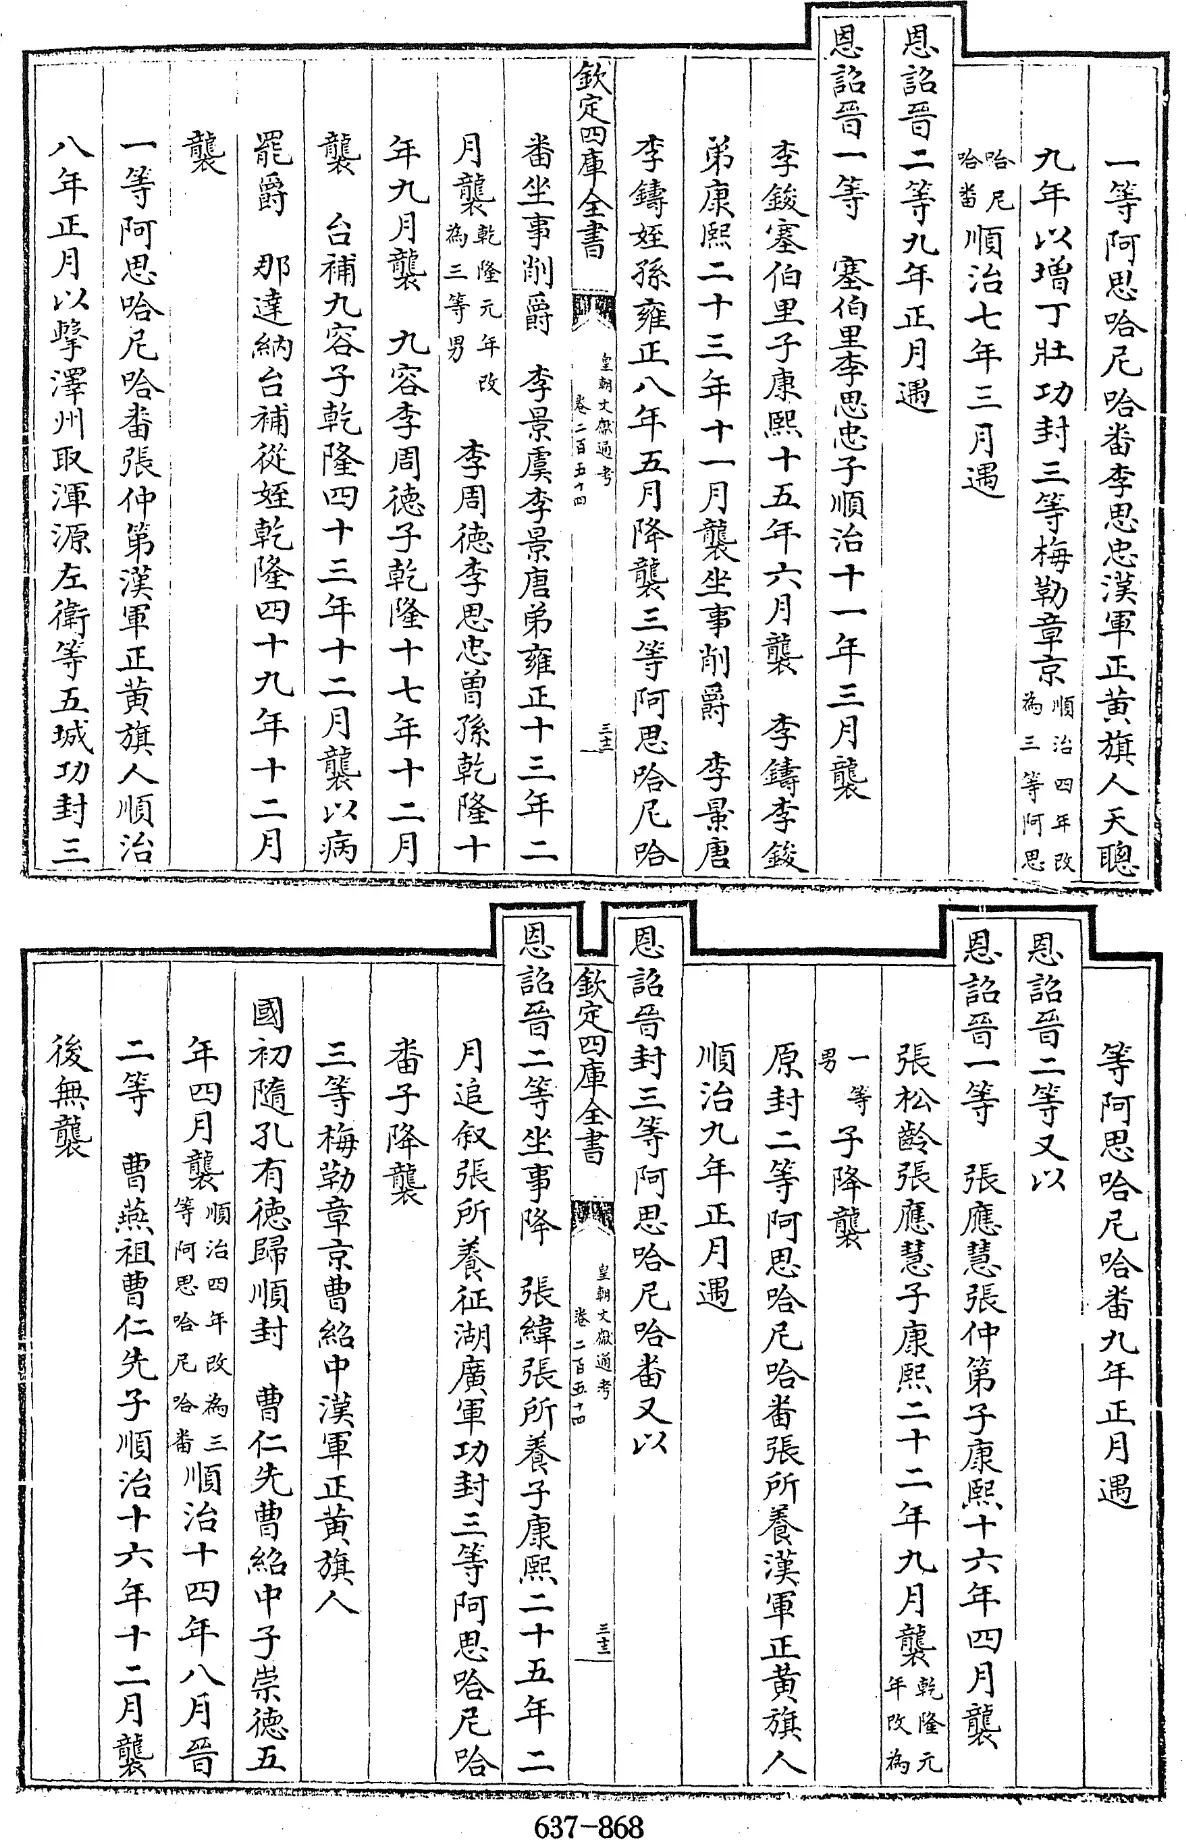 一等阿思哈尼哈番李思忠漢軍正黄旗人天聰
九年以增丁壯功封三等梅勒章京順治四年改為三等阿思
哈尼哈番順治七年三月遇
恩詔晉二等九年正月遇
恩詔晉一等　塞伯里李思忠子順治十一年三月襲
李鋑塞伯里子康熙十五年六月襲　李鑄李鋑
弟康熙二十三年十一月襲坐事削爵　李景唐
李鑄姪孫雍正八年五月降襲三等阿思哈尼哈
欽定四庫全書　皇朝文獻通考卷二百五十四　三十二
番坐事削爵　李景虞李景唐弟雍正十三年二
月襲乾隆元年改為三等男　李周德李思忠曽孫乾隆十
年九月襲　九容李周德子乾隆十七年十二月
襲　台補九容子乾隆四十三年十二月襲以病
罷爵　那達納台補從姪乾隆四十九年十二月
襲
一等阿思哈尼哈番張仲第漢軍正黄旗人順治
八年正月以擊澤州取渾源左衛等五城功封三
等阿思哈尼哈番九年正月遇
恩詔晉二等又以
恩詔晉一等　張應慧張仲第子康熙十六年四月襲
張松齡張應慧子康熙二十二年九月襲乾隆元年改為
一等男　子降襲
原封二等阿思哈尼哈番張所養漢軍正黄旗人
順治九年正月遇
恩詔晉封三等阿思哈尼哈番又以
欽定四庫全書　皇朝文獻通考卷二百五十四　三十三
恩詔晉二等坐事降　張緯張所養子康熙二十五年二
月追叙張所養征湖廣軍功封三等阿思哈尼哈
番子降襲
三等梅勒章京曹紹中漢軍正黄旗人
國初隨孔有德歸順封　曹仁先曹紹中子崇德五
年四月襲順治四年改為三等阿思哈尼哈番順治十四年八月晉
二等　曹燕祖曹仁先子順治十六年十二月襲
後無襲
637-868